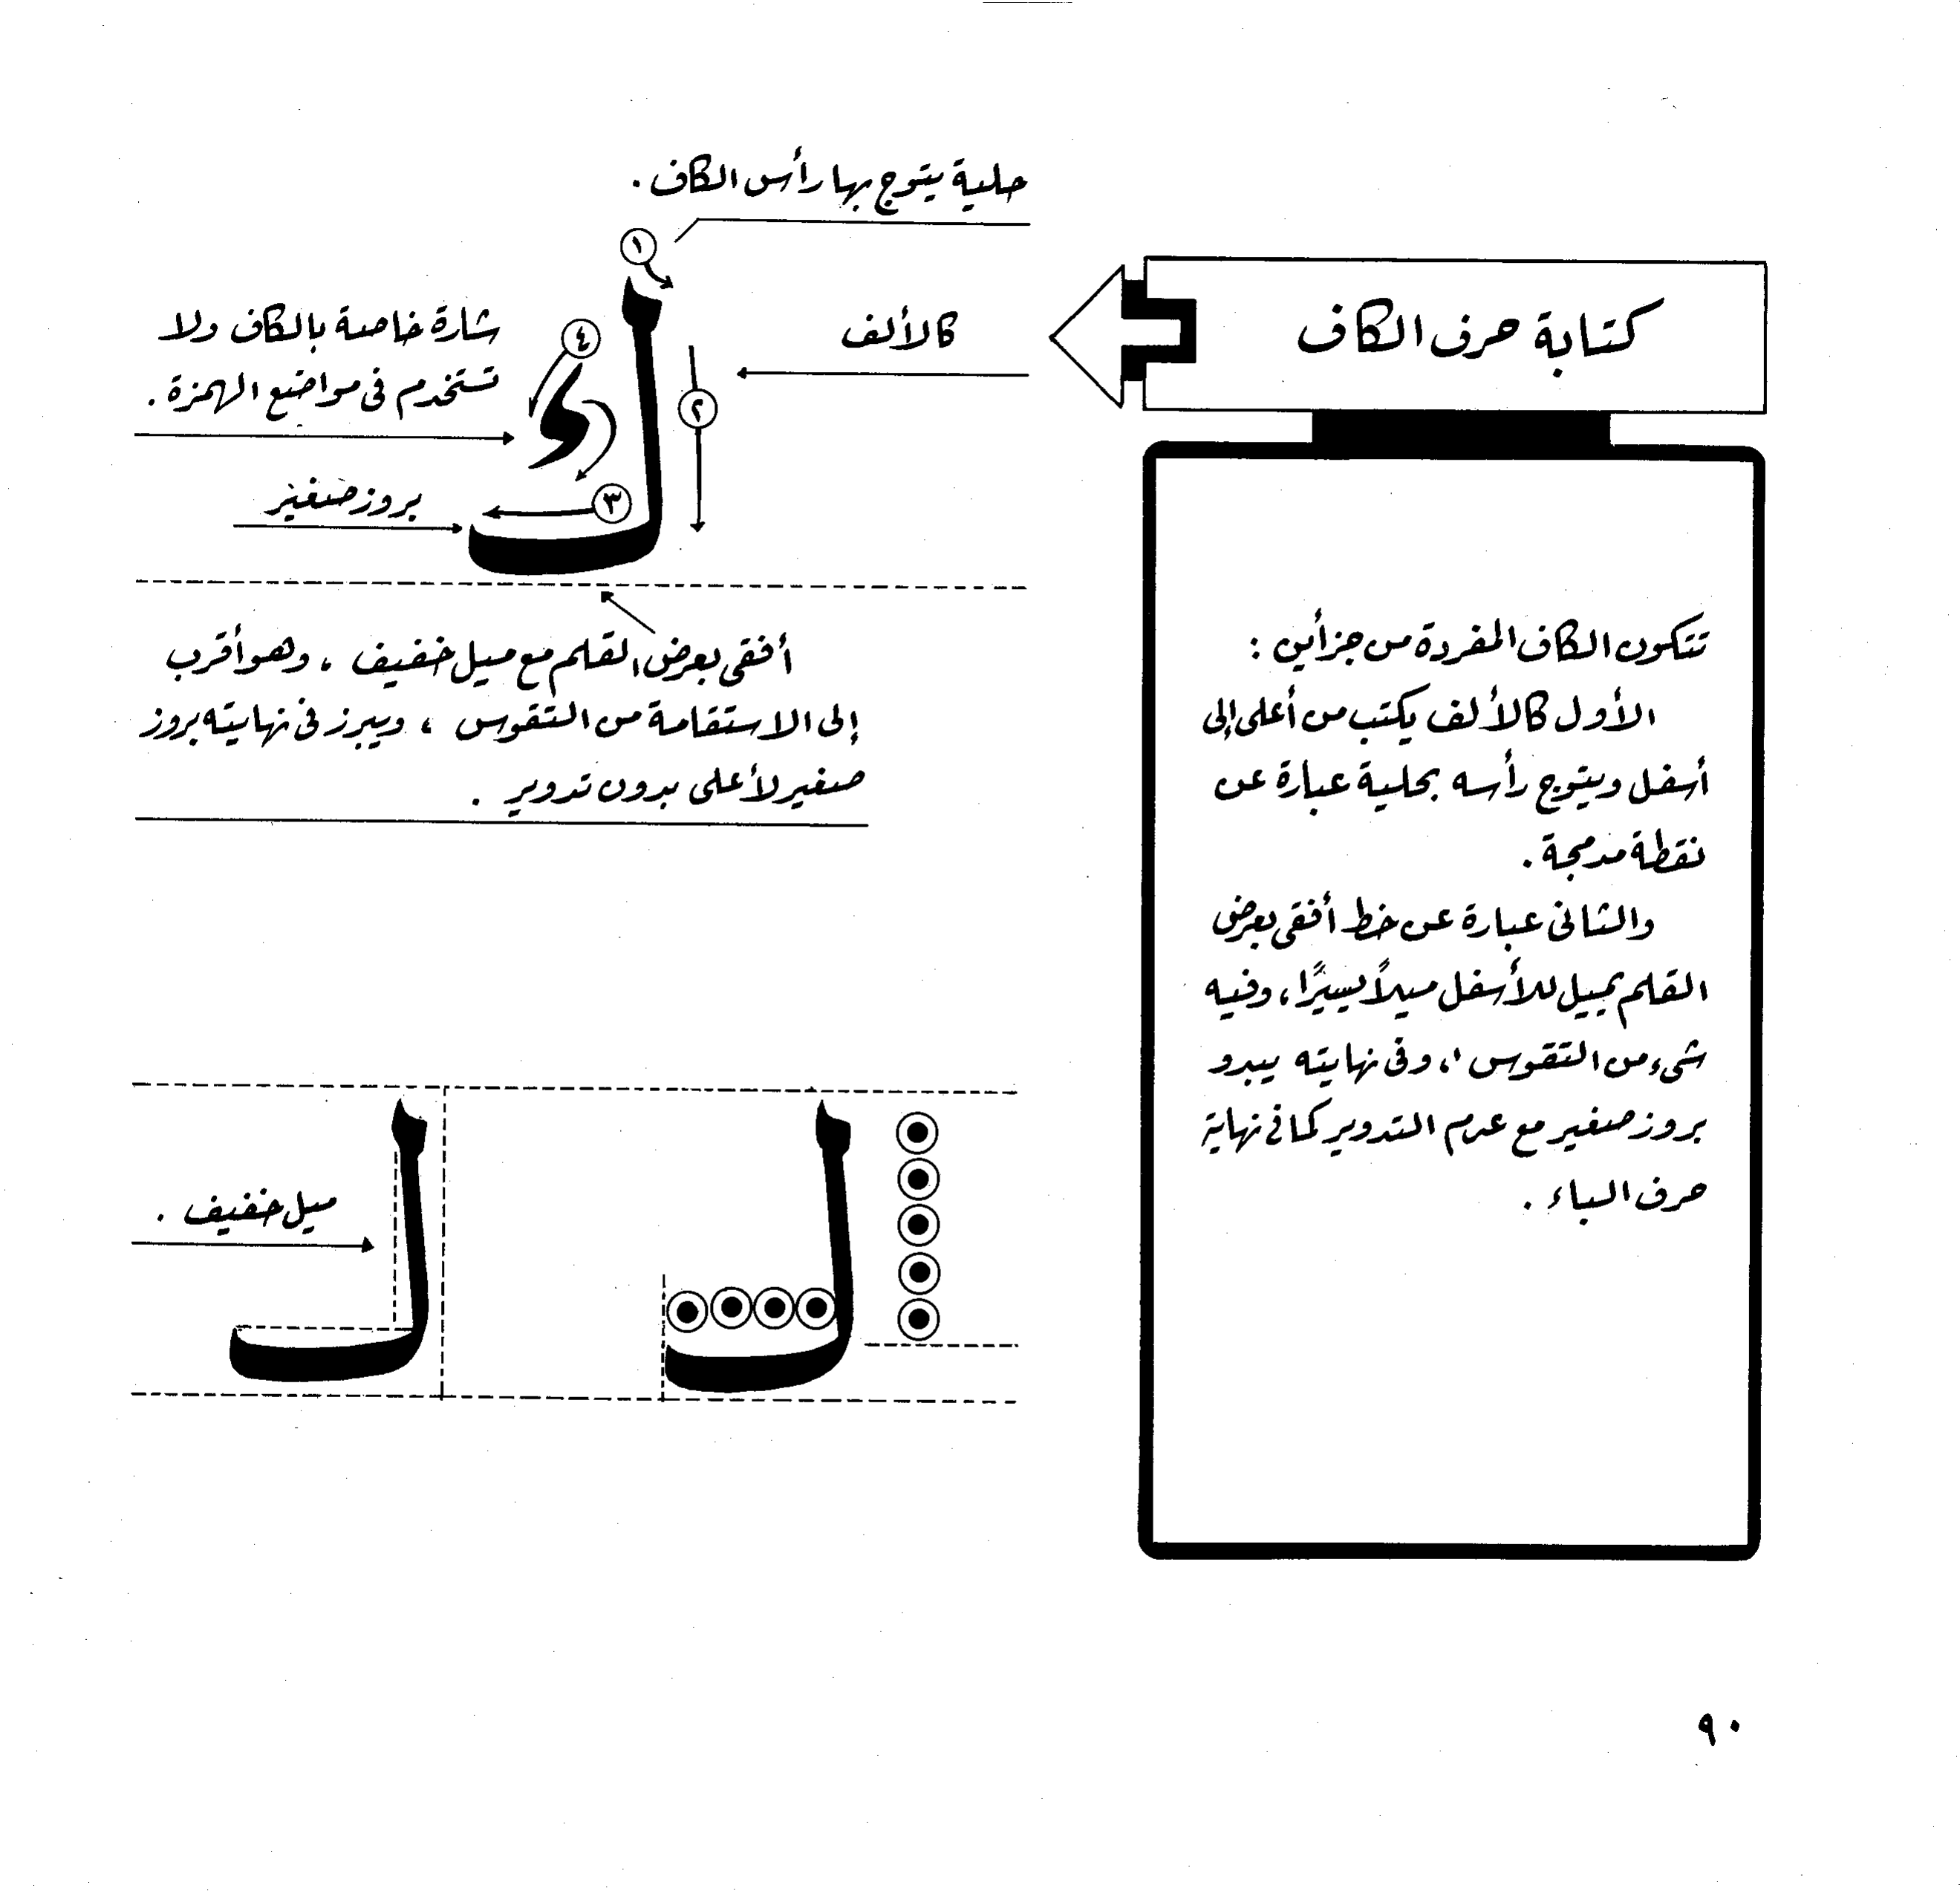 كتابة حرف الكاف
تتكون الكاف المفردة من جزأين :
الأول كالألف يكتب من أعلى إلى
أسفل ويتوج رأسه بحلية عبارة عن
نقطة مدمجة .
والثانى عبارة عن خط أفقى بعرض
القلم يميل للأسفل ميلاً يسيرًا ، وفيه
شىء من التقوس ، وفى نهايته يبدو
بروز صغير مع عدم التدوير كما فى نهاية
حرف الباء .
حلية يتوج بها رأس الكاف .
١
كالألف
٢
شارة خاصة بالكاف ولا
تستخدم فى مواضع الهمزة .
٤
بروز صغير
٣
أفقى بعرض القلم مع ميل خفيف ، وهو أقرب
إلى الاستقامة من التقوس ، ويبرز فى نهايته بروز
صغير لأعلى بدون تدوير .
ميل خفيف .
٩٠